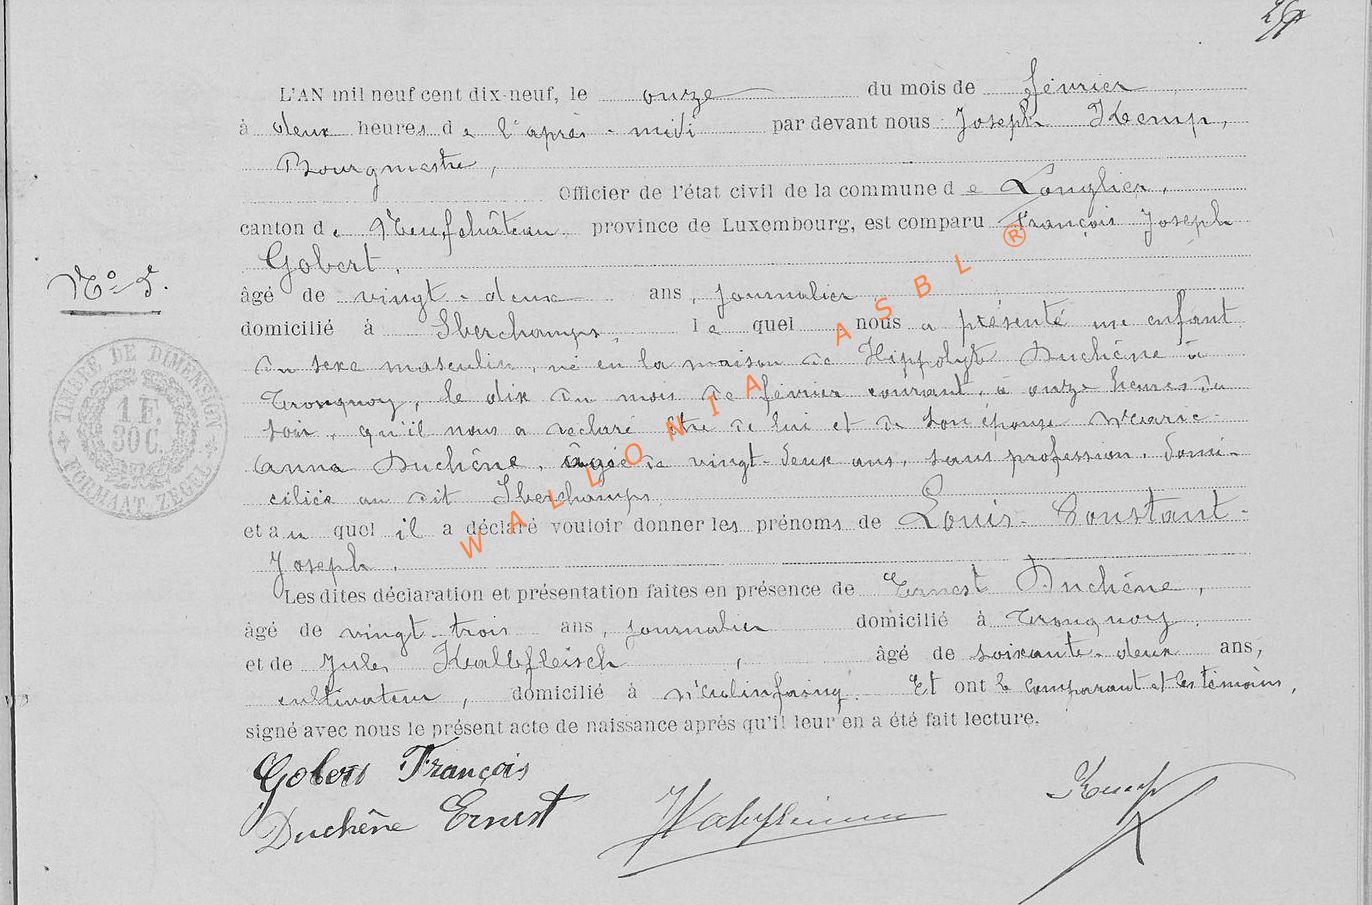 L'AN mil neuf cent dix-neuf, le onze du mois de février
à deux heures de l'après-midi par devant nous Joseph Kemp,
Bourgmestre,
Officier de l'état civil de la commune de Longlier,
canton de Neufchâteau province de Luxembourg, est comparu François Joseph
Gobert,
âgé de vingt-deux ans, journalier
domicilié à Sberchamps, le quel nous a présenté un enfant
du sexe masculin, né en la maison de Hippolyte Duchêne à
Tronquoy, le dix du mois de février courant, à onze heures du
soir, qu'il nous a déclaré être de lui et de son épouse Marie
Anna Duchêne, âgée de vingt-deux ans, sans profession, domi-
ciliée au dit Sberchamps
et au quel il a déclaré vouloir donner les prénoms de Louis-Constant-
Joseph.
Les dites déclaration et présentation faites en présence de Ernest Duchêne,
âgé de vingt-trois ans, journalier domicilié à Tronquoy,
et de Jules Kalbfleisch, âgé de soixante-deux ans,
cultivateur, domicilié à Molinfaing. Et ont le comparant et les témoins,
signé avec nous le présent acte de naissance après qu'il leur en a été fait lecture.
No 5.
TIMBRE DE DIMENSION
1 F.
30 C.
FORMAAT ZEGEL
Gobert François
Duchêne Ernest
Kemp
WALLONIA ASBL ®